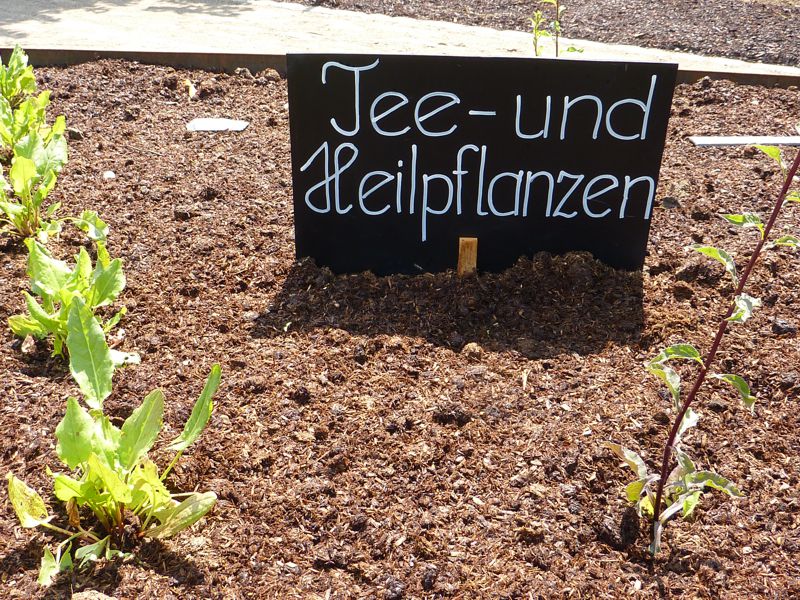 Tee- und
Heilpflanzen